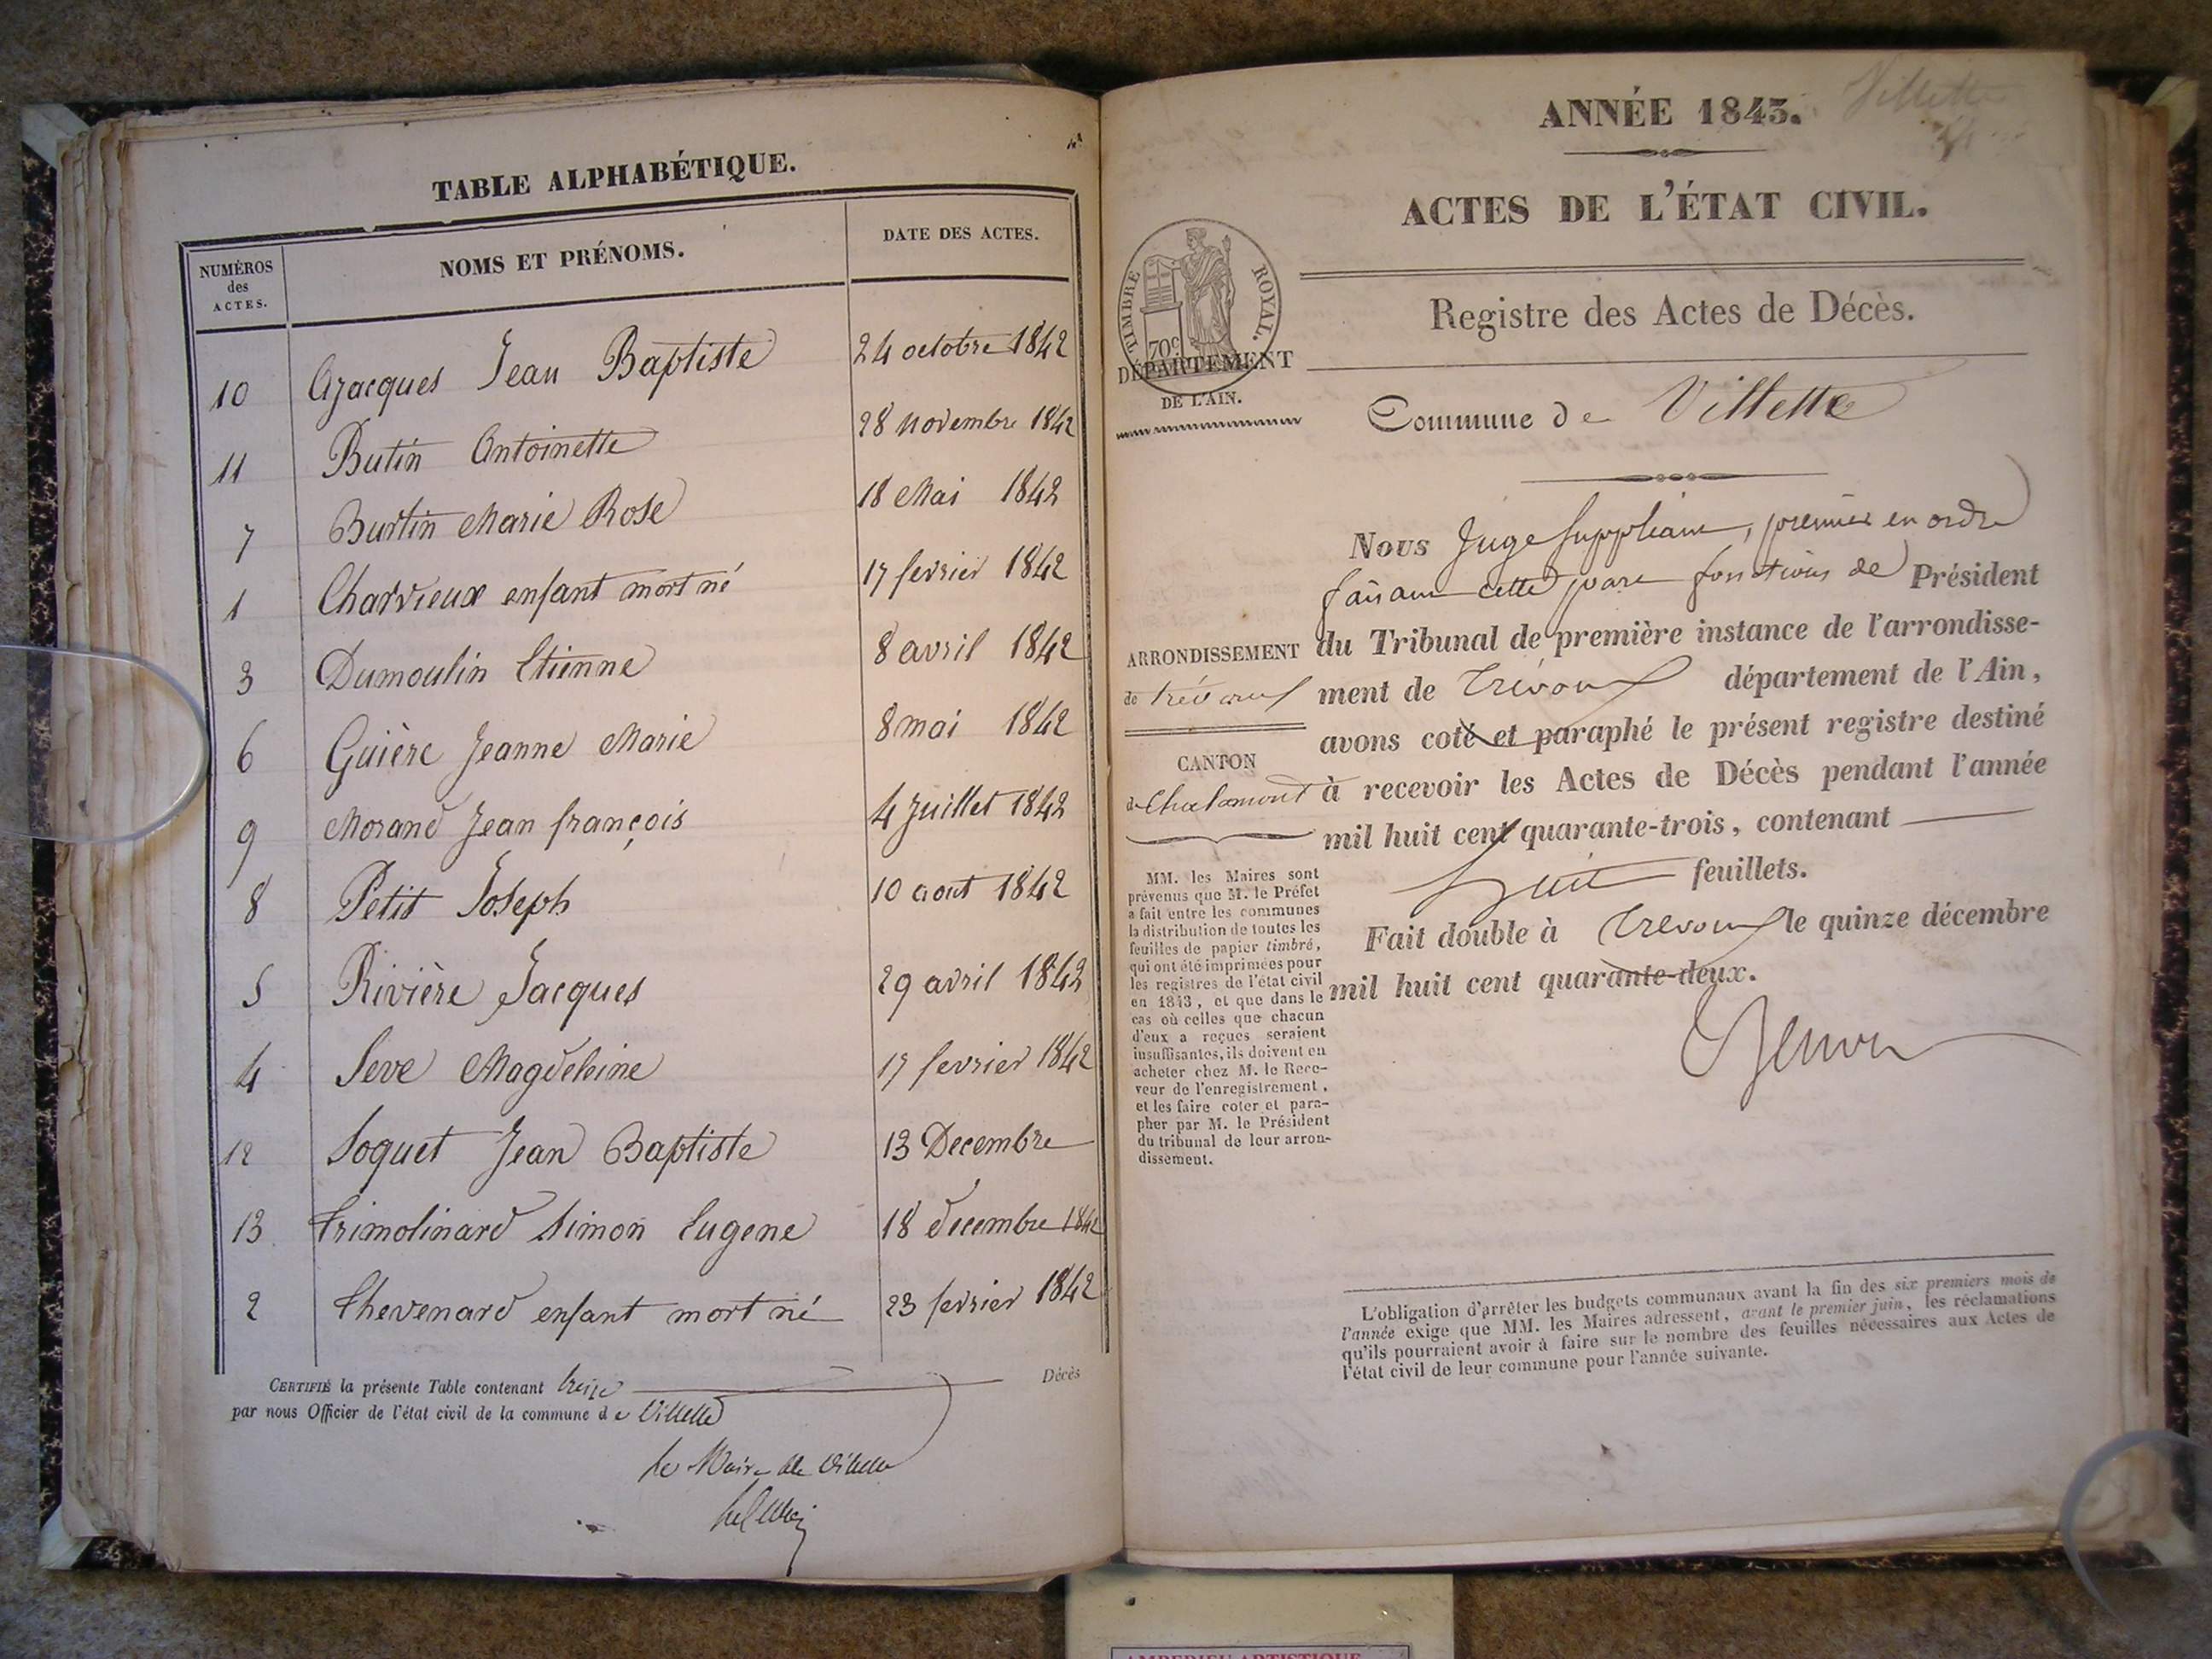 TABLE ALPHABÉTIQUE.
NUMÉROS des ACTES. NOMS ET PRÉNOMS. DATE DES ACTES.
10 Ajacques Jean Baptiste 24 octobre 1842
11 Butin Antoinette 28 novembre 1842
7 Burtin Marie Rose 18 Mai 1842
1 Charvieux enfant mort né 17 fevrier 1842
3 Dumoulin Etienne 8 avril 1842
6 Guière Jeanne Marie 8 mai 1842
9 Morand Jean françois 4 Juillet 1842
8 Petit Joseph 10 aout 1842
5 Rivière Jacques 29 avril 1842
4 Seve Magdeleine 17 fevrier 1842
12 Soquet Jean Baptiste 13 Decembre
13 Trimolinard Simon Eugene 18 decembre 1842
2 Thevenard enfant mort né 23 fevrier 1842
CERTIFIÉ la présente Table contenant treize Décès
par nous Officier de l'état civil de la commune de Villette
le Maire de Villette
Villette
ANNÉE 1843.
ACTES DE L'ÉTAT CIVIL.
TIMBRE ROYAL.
70c
DÉPARTEMENT
DE L'AIN.
Registre des Actes de Décès.
Commune de Villette
Nous Juge Suppléant, premier en ordre
faisant cette part fonctions de Président
du Tribunal de première instance de l'arrondisse-
ment de Trévoux département de l'Ain,
avons coté et paraphé le présent registre destiné
à recevoir les Actes de Décès pendant l'année
mil huit cent quarante-trois, contenant
huit feuillets.
Fait double à Trévoux le quinze décembre
mil huit cent quarante-deux.
ARRONDISSEMENT
de Trévoux
CANTON
de Chalamont
MM. les Maires sont
prévenus que M. le Préfet
a fait entre les communes
la distribution de toutes les
feuilles de papier timbré,
qui ont été imprimées pour
les registres de l'état civil
en 1843, et que dans le
cas où celles que chacun
d'eux a reçues seraient
insuffisantes, ils doivent en
acheter chez M. le Rece-
veur de l'enregistrement,
et les faire coter et para-
pher par M. le Président
du tribunal de leur arron-
dissement.
L'obligation d'arrêter les budgets communaux avant la fin des six premiers mois de
l'année exige que MM. les Maires adressent, avant le premier juin, les réclamations
qu'ils pourraient avoir à faire sur le nombre des feuilles nécessaires aux Actes de
l'état civil de leur commune pour l'année suivante.
AMBERIEU ARTISTIQUE